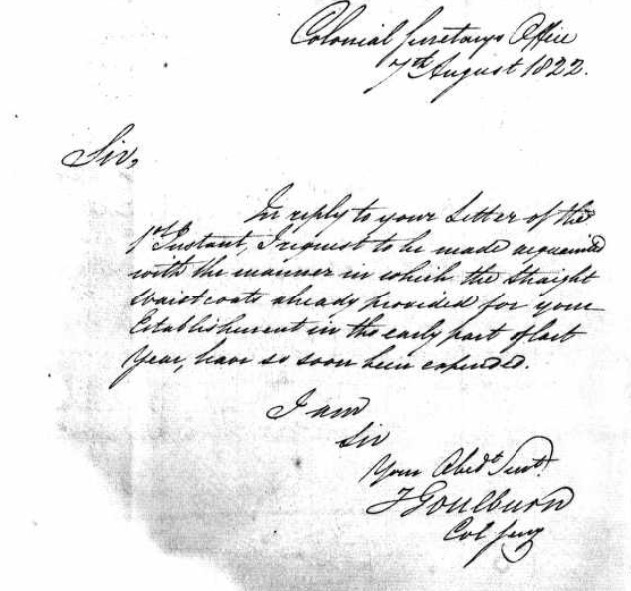 Colonial Secretarys Office
7th August 1822.
Sir,
In reply to your Letter of the
1st Instant, I request to be made acquainted
with the manner in which the Straight
waistcoats already provided for your
Establishment in the early part of last
Year, have so soon been expended.
I am
Sir
Your Obedt Servt
F Goulburn
Col Secy